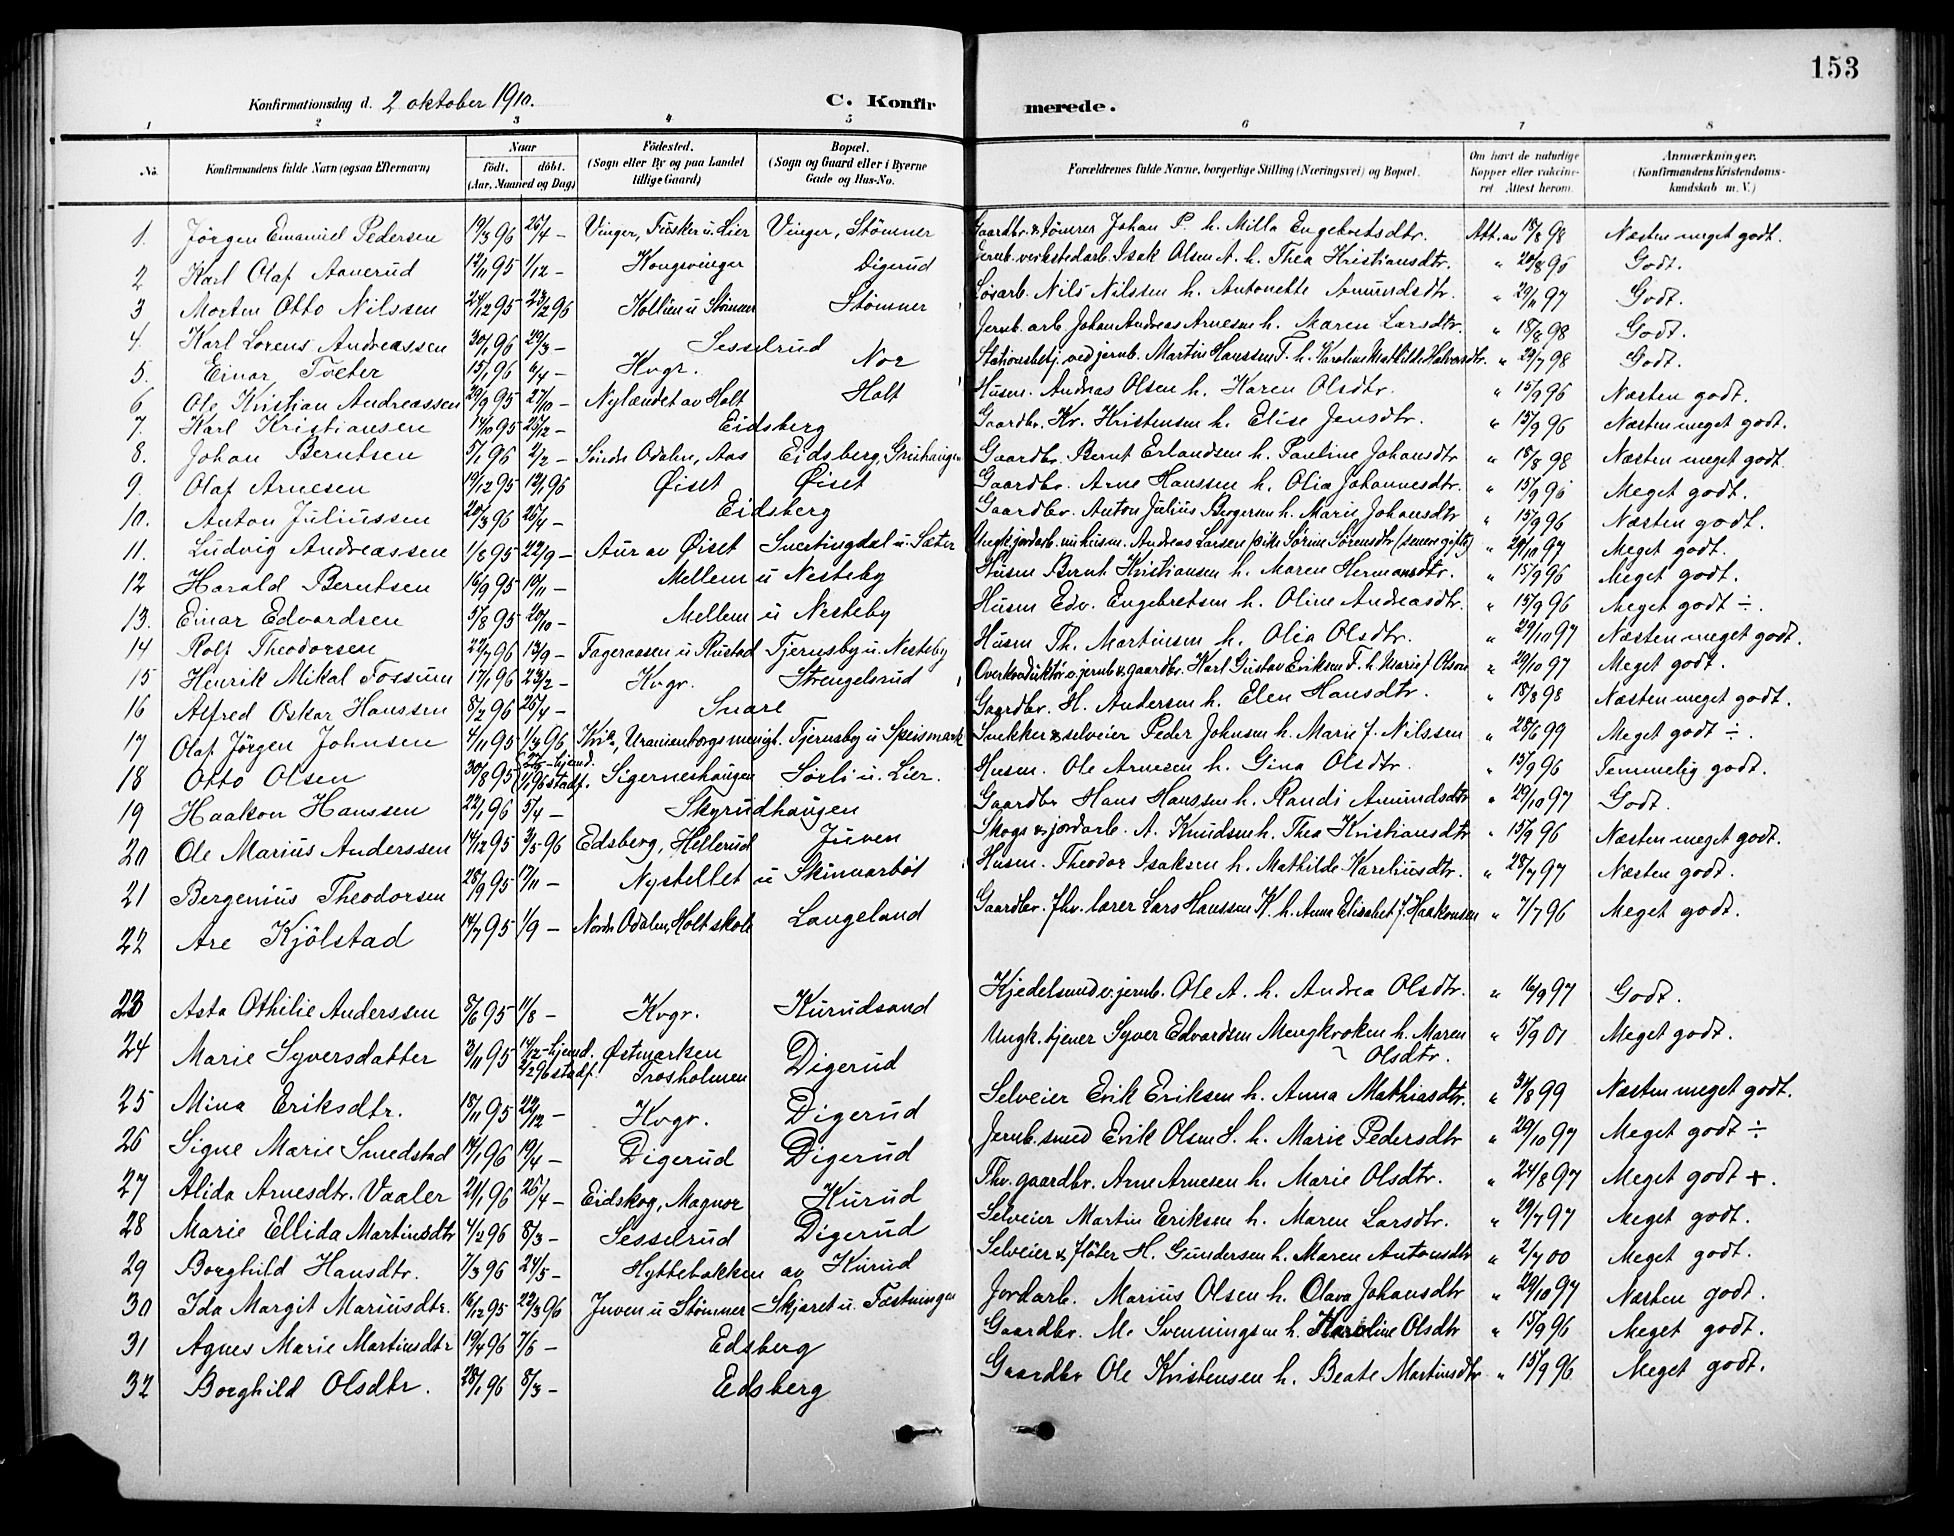 153
Konfirmationsdag d. 2 oktober 1910. C. Konfirmerede.
1 2 3 4 5 6 7 8
No. Konfirmandens fulde Navn (ogsaa Efternavn) Naar født. døbt. (Aar, Maaned og Dag) Fødested. (Sogn eller By og paa Landet tillige Gaard) Bopæl. (Sogn og Gaard eller i Byerne Gade og Hus-No. Forældrenes fulde Navne, borgerlige Stilling (Næringsvei) og Bopæl. Om havt de naturlige Kopper eller vaccineret. Attest herom. Anmærkninger. (Konfirmandens Kristendomskundskab m. V.)
1. Jørgen Emanuel Pedersen 19/3 96 26/4 – Vinger, Fusker u. Lier Vinger, Stømner Gaardbr. & tømrer Johan P. h. Milla Engebretsdtr. Att. av 18/8 98 Næsten meget godt.
2 Karl Olaf Aanerud 12/11 95 1/12 – Kongsvinger Digerud Jernb. verkstedarb. Isak Olsen A. h. Thea Kristiansdtr. " 20/8 96 Godt.
3 Morten Otto Nilssen 24/12 95 23/2 96 Kollien u Stømner Stømner Løsarb. Nils Nilssen h. Antonette Amundsdtr. " 29/11 97 Godt.
4. Karl Lorens Andreassen 30/1 96 29/3 – Sesselrud Jernb. arb. Johan Andreas Arnesen h. Maren Larsdtr. " 18/8 98 Godt.
5. Einar Tveter 15/1 96 6/4 – Kvgr. Nor Stationsbetj. ved jernb. Martin Hanssen T. h. Karoline Mathilde Halvorsdtr. " 29/7 98 Godt.
6. Ole Kristian Andreassen 29/9 95 27/10 – Nylændet av Holt Holt Husm. Andreas Olsen h. Karen Olsdtr. " 15/9 96 Næsten godt.
7. Karl Kristiansen 17/10 95 25/12 – Eidsberg Gaardbr. Kr. Kristensen h. Elise Jensdtr. " 15/9 96 Næsten meget godt.
8. Johan Berntsen 5/1 96 2/2 – Søndre Odalen, Aas Eidsberg, Grushaugen Gaardbr. Bernt Erlandsen h. Pauline Johansdtr " 18/8 98 Næsten meget godt.
9. Olaf Arnesen 19/12 95 12/1 96 Øiset Øiset Gaardbr. Arne Hanssen h. Olia Johannesdtr. " 15/9 96 Meget godt.
10. Anton Juliussen 20/3 96 26/4 – Eidsberg Gaardbr. Anton Julius Bergersen h. Marie Johansdtr " 15/9 96 Næsten godt.
11. Ludvig Andreassen 1/8 95 22/9 – Aur av Øiset Svertingdal u. Sæter Ungk. jordarb. nu husm. Andreas Larsen pike Sørine Sørensdtr (senere gifte) " 29/10 97 Meget godt.
12 Harald Berntsen 16/9 95 10/11 – Mellem u Nesteby Husm Bernt Kristiansen h. Maren Hermansdtr. " 15/9 96 Meget godt.
13. Einar Edvardsen 5/8 95 20/10 – Mellem u Nesteby Husm Edv. Engebretsen h. Oline Andreasdtr. " 15/9 96 Meget godt ÷.
14 Rolf Theodorsen 22/7 96 13/9 – Fageraasen u Rustad Tjernsby u. Nesteby Husm Th. Martinsen h. Olia Olsdtr. " 29/10 97 Næsten meget godt.
15 Henrik Mikal Fossum 17/1 96 23/2 – Kvgr. Strengelsrud Overkonduktør v. jernb. & gaardbr. Karl Gustav Eriksen F. h. Marie f. Olsen " 29/10 97 Meget godt.
16 Alfred Oskar Hanssen 8/2 96 26/4 – Snare Gaardbr. H. Andersen h. Elen Hansdtr. " 18/8 98 Næsten meget godt.
17 Olaf Jørgen Johnsen 4/11 95 1/3 96 Kria, Uranienborgs menigt. Tjernsby u Speismark Snekker & selveier Peder Johnsen h. Marie f. Nilssen " 28/6 99 Meget godt ÷.
18 Otto Olsen 30/8 95 hjemd. 1/1 96 stadf. Sigerneshaugen Sørli u. Lier. Husm. Ole Arnesen h. Gina Olsdtr. " 15/9 96 Temmelig godt.
19 Haakon Hanssen 22/1 96 5/4 – Skyrudhaugen Gaardbr Hans Hanssen h. Randi Amundsdtr " 29/10 97 Godt.
20 Ole Marius Anderssen 14/12 95 3/5 96 Edsberg, Hellerud Juven Skogs & jordarb. A. Knudsen h. Thea Kristiansdtr " 15/9 96 Næsten meget godt.
21 Bergenius Theodorsen 28/9 95 17/11 – Nystellet u Skinnarbøl Husm. Theodor Isaksen h. Mathilde Kareliusdtr. " 28/7 97 Næsten godt.
22 Are Kjølstad 14/7 95 1/9 – Nordr. Odalen, Holt skole Langeland Gaardbr. fhv. lærer Lars Hanssen K. h. Anna Elisabet f. Haakonsen " 7/7 96 Meget godt.
23 Asta Othilie Anderssen 8/6 95 11/8 – Kvgr. Kurudsand Kjedelsmed v. jernb. Ole A. h. Andrea Olsdtr. " 16/9 97 Godt.
24 Marie Syversdatter 3/11 95 14/12 – hjemd. 2/2 96 stadf. Østmarken Trosholmen Digerud Ungk. tjener Syver Edvardsen Mengkroken h. Maren Olsdtr. " 5/9 01 Meget godt.
25 Mina Eriksdtr. 18/11 95 22/12 – Kvgr. Digerud Selveier Erik Eriksen h. Anna Mathiasdtr. " 31/8 99 Næsten meget godt.
26 Signe Marie Smedstad 14/1 96 19/4 – Digerud Digerud Jernb. smed Erik Olsen S. h. Marie Pedersdtr " 29/10 97 Meget godt ÷
27 Alida Arnesdtr. Vaaler 21/1 96 26/4 – Eidskog, Magnor Kurud Fhv. gaardbr. Arne Arnesen h. Marie Olsdtr. " 24/8 97 Meget godt +.
28 Marie Ellida Martinsdtr 4/2 96 8/3 – Sesselrud Digerud Selveier Martin Eriksen h. Maren Larsdtr. " 29/7 97 Meget godt.
29 Borghild Hansdtr. 7/3 96 24/5 – Hyttebakken av Kurud Selveier & fløter H. Gundersen h. Maren Antonsdtr " 2/7 00 Meget godt.
30 Ida Margit Mariusdtr. 16/12 95 22/3 96 Juven u Stømner Skjæret u. Fæstningen Jordarb. Marius Olsen h. Olava Johansdtr " 29/10 97 Næsten godt.
31 Agnes Marie Martinsdtr 19/4 96 7/6 – Edsberg Gaardbr. M. Svenningsen h. Karoline Olsdtr " 15/9 96 Meget godt.
32 Borghild Olsdtr. 28/1 96 8/3 – Edsberg Gaardbr Ole Kristensen h. Beate Martinsdtr " 15/9 96 Meget godt.